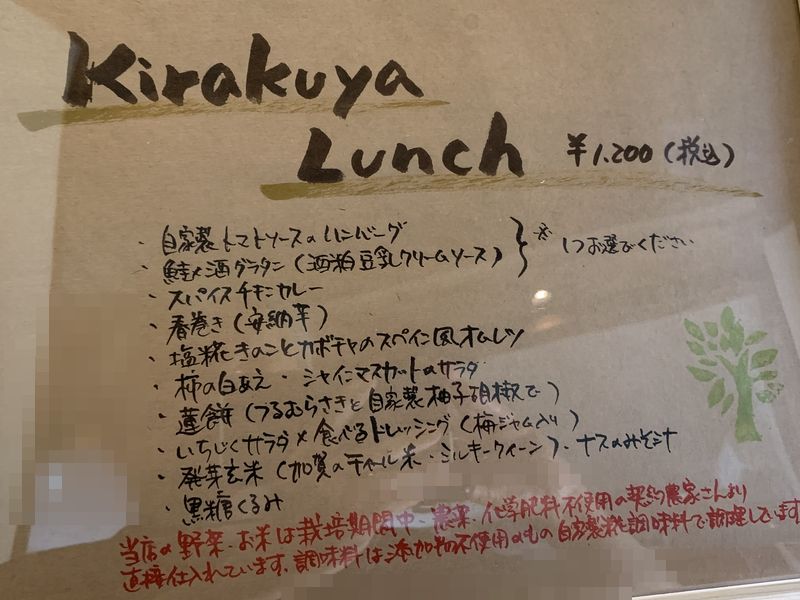 Kirakuya
Lunch ¥1.200(税込)
・自家製トマトソースのハンバーグ
・鮭×酒グラタン(酒粕豆乳クリームソース) } ※1つお選びください
・スパイスチキンカレー
・春巻き(安納芋)
・塩糀きのことカボチャのスペイン風オムレツ
・柿の白あえ・シャインマスカットのサラダ
・蓮餅(つるむらさきと自家製柚子胡椒で)
・いちじくサラダ×食べるドレッシング(梅ジャム入り)
・発芽玄米(加賀の米・ミルキークイーン)・ナスのみそ汁
・黒糖くるみ
当店の野菜・お米は栽培期間中・農薬・化学肥料不使用の契約農家さんより
直接仕入れています。調味料は添加物不使用のもの自家製糀調味料で調理しています